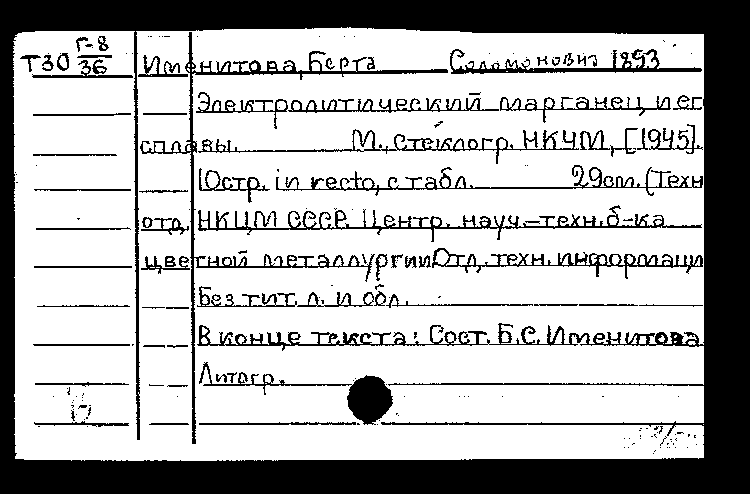 Т30 Г-8/36 Именитова, Берта Соломоновна 1893
Электролитический марганец и ег
сплавы. М., стеклогр. НКЧМ, [1945].
10стр. in recto, с табл. 29см. (Техн
отд. НКЦМ СССР. Центр. науч.-техн. б-ка
цветной металлургии. Отд. техн. информаци
Без тит. л. и обл.
В конце текста: Сост. Б.С. Именитова
Литогр.